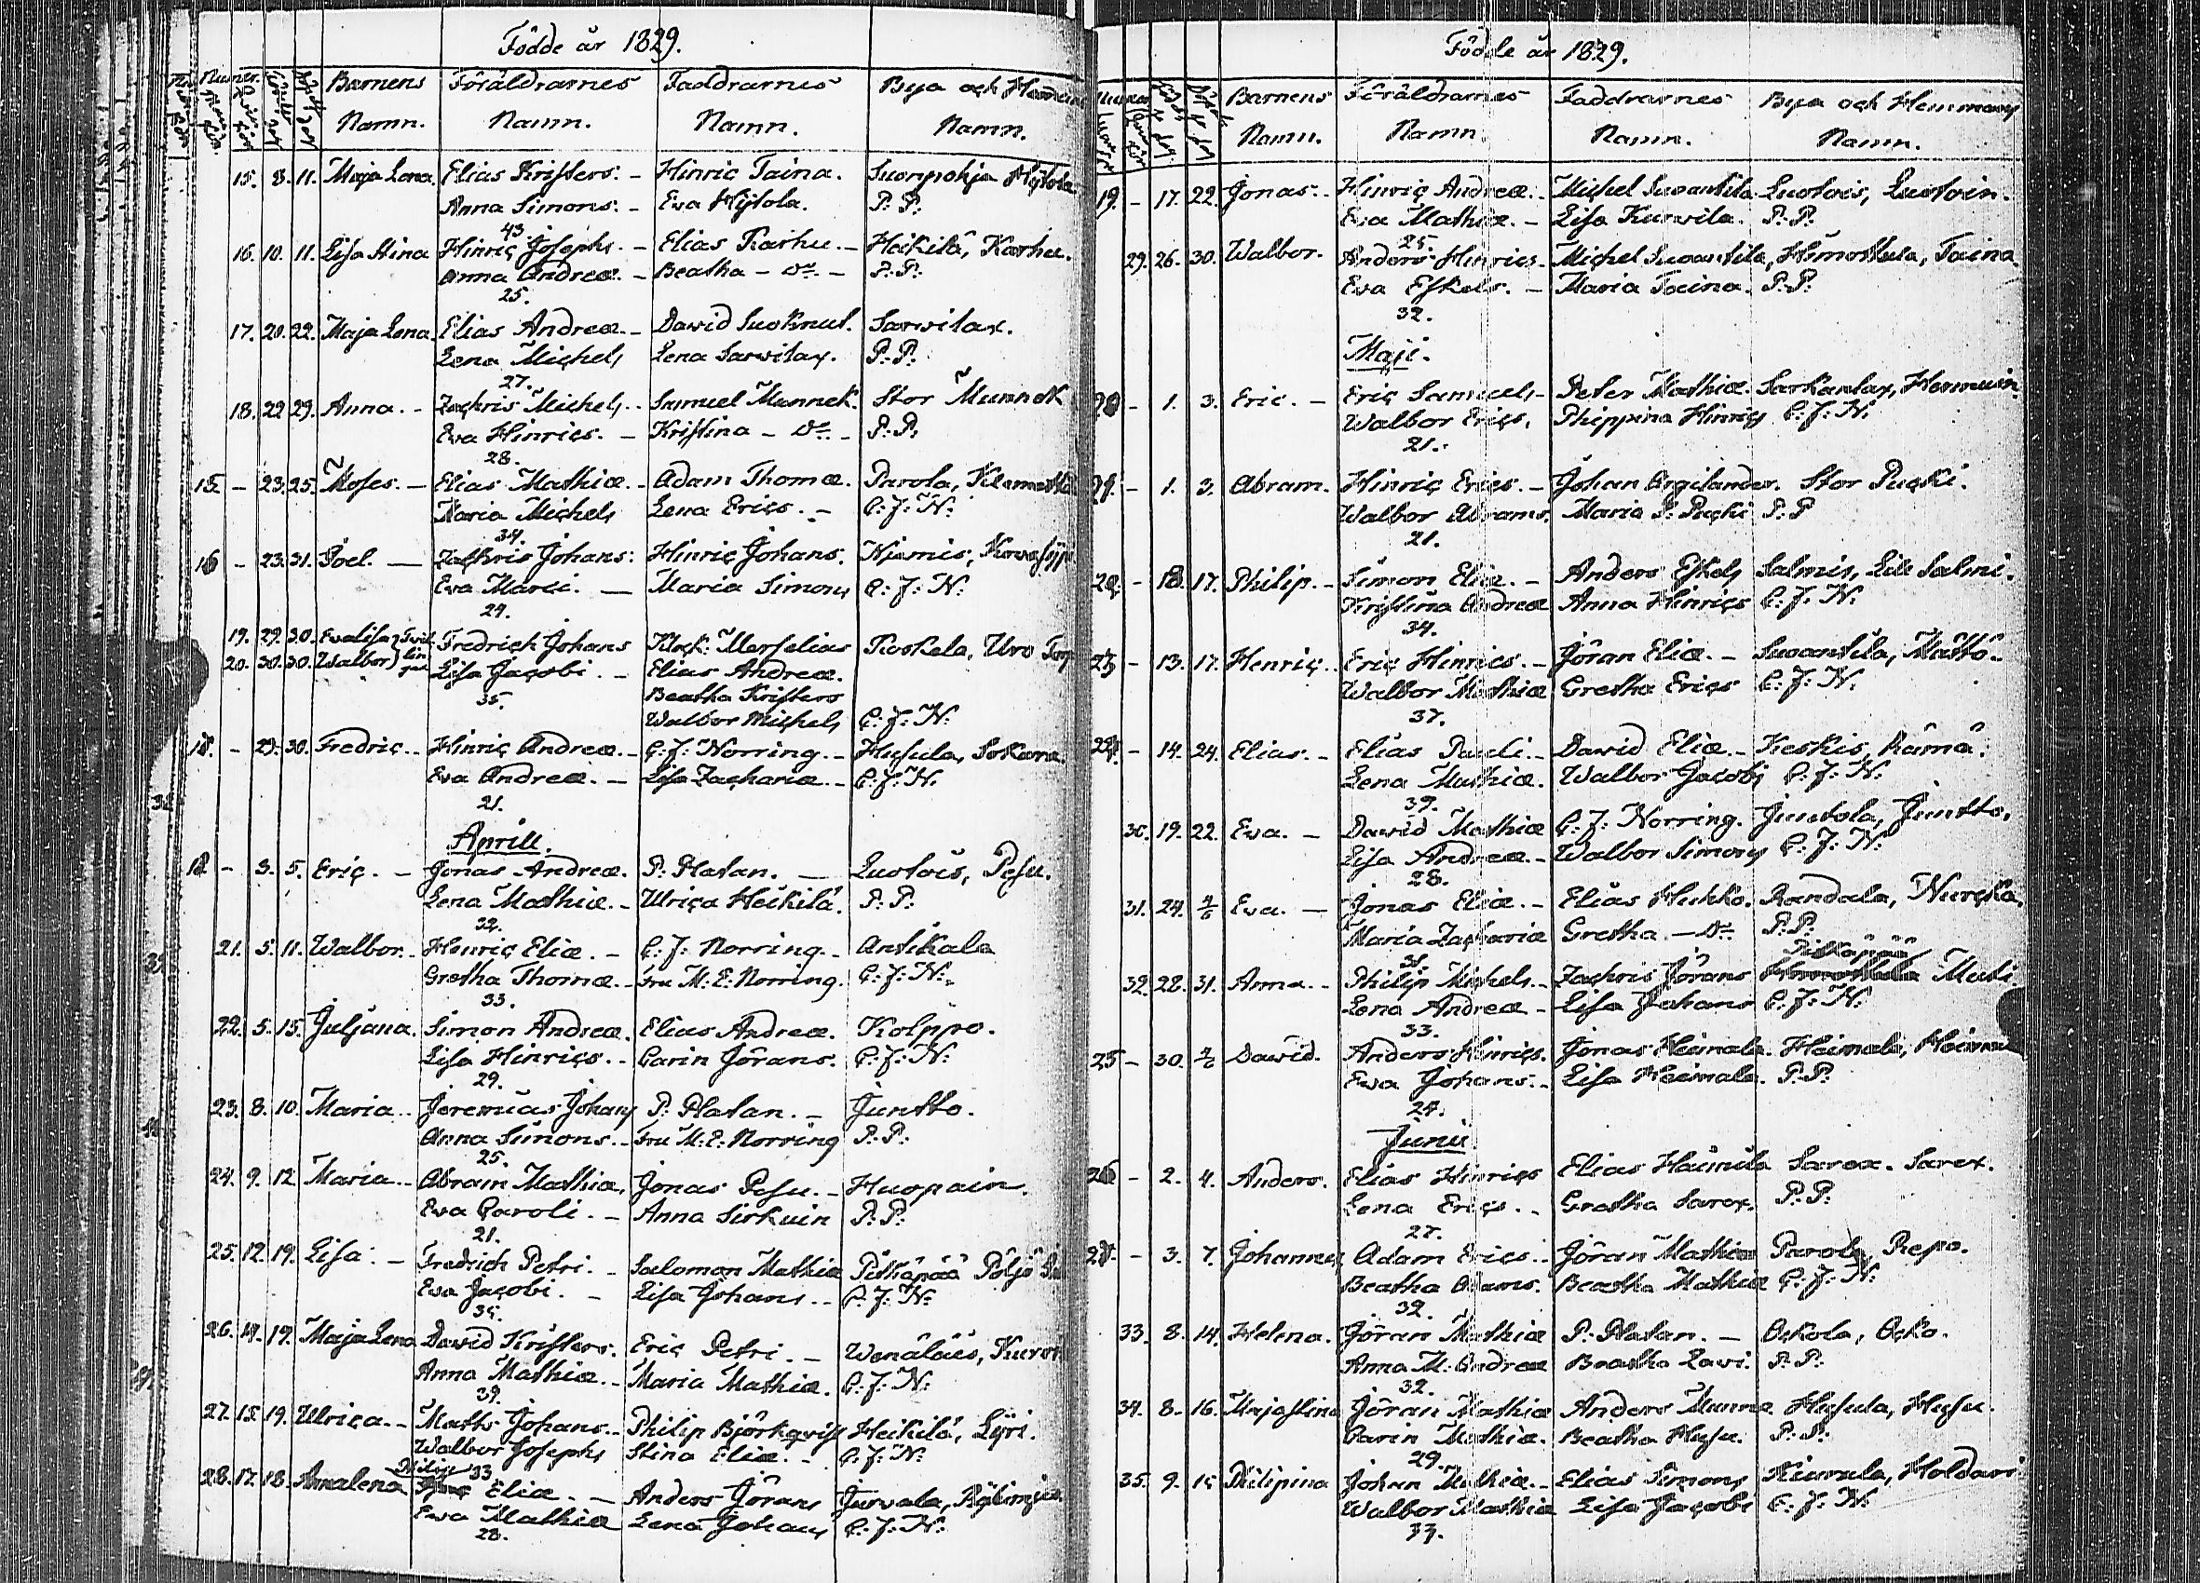 Födde år 1829.
Barnens Föräldrarnes Faddrarnes Bya och
Namn. Namn. Namn. Namn.
15. 8. 11. Maja Lena. Elias Kristers. - Hinric Taina. Suonpohja Hÿtola
Anna Simons. - Eva Hÿtola. P. P.
43.
16. 10. 11. Lisa Stina Hinric Josephs. - Elias Karhu. - Heikilä, Karhu.
Anna Andreæ. - Beatha - Do. - P. P.
25.
17. 20. 22. Maja Lena Elias Andreæ. - David Suoknut. Sarvilax.
Lena Michels Lena Sarvilax. P. P.
27.
18. 22. 29. Anna. - Zachris Michels. - Samuel Munnek. Stor Munnek
Eva Hinrics. - Kristina - Do. - P. P.
28.
15. - 23. 25. Moses. - Elias Mathiæ. - Adam Thomæ. Parola,
Maria Michels Lena Erics. - C: J: N:
34.
16 - 23. 31. Joel. - Zachris Johans: Hinric Johans. Niemis,
Eva Marci. - Maria Simons C: J: N:
24.
19. 29. 30. Evalisa Fredrich Johans Klock: Marselias Koskela, Uro Torp
20. 30. 30. Walbor Lisa Jacobi. - Elias Andreæ.
35. Beatha Kristers
Walbor Michels C: J: N:
- 29. 30. Fredric. - Hinric Andreæ. - C: J: Norring. - Husula, Sokura.
Eva Andreæ. - Lisa Zachariæ. - C: J: N.
21.
Aprill.
18 - 3. 5. Eric. - Jonas Andreæ. P. Platan. - Luotois, Pesu.
Lena Mathiæ. - Ulrica Heikilä. P. P.
32.
21. 5. 11. Walbor. - Henric Eliæ. - C: J: Norring. - Antikala
Gretha Thomæ. - Fru M: E: Norring. C: J: N:
33.
22. 5. 15. Juljana. Simon Andreæ. Elias Andreæ. Kolppo.
Lisa Hinrics. - Carin Jörans. C: J: N:
29.
23. 8. 10. Maria. - Jeremias Johans P: Platan. - Juntto.
Anna Simons. - Fru M: E: Norring P. P.
25.
24. 9. 12 Maria. - Abram Mathiæ, Jonas Pesu. - Huopain.
Eva Caroli. - Anna Sirkuin P. P.
21.
25. 12. 19. Lisa. - Fredrich Petri. - Salomon Mathiæ Pitkäpää
Eva Jacobi. - Lisa Johans. - C: J: N:
35.
26. 14. 19. Maja Lena David Kristers. Eric Petri. - Wenäläis,
Anna Mathiæ. - Maria Mathiæ. C: J: N:
39.
27. 15. 19. Ulrica. - Matts Johans. - Philip Björkqvist Heikilä, Lÿri.
Walbor Josephs Stina Eliæ. - C: J: N:
33
28. 17. 18. Annalena Eliæ. - Anders Jörans Jurvala,
Eva Mathiæ Lena Johans C: J: N:
28.
Födde år 1829.
Barnens Föräldrarnes Faddrarnes Bya och Hemmans
Namn. Namn. Namn. Namn.
19. - 17. 22. Jonas. - Hinric Andreæ. - Michel Suoantila Luotois, Luotoin.
Eva Mathiæ. - Lisa Kurvila. P. P.
25.
29. 26. 30. Walbor. Anders Hinrics. - Michel Suoantila, Himottula, Taina.
Eva Eskels. - Maria Taina. P. P.
32.
Maji.
20 - 1. 3. Eric. - Eric Samuels - Peter Mathiæ. Sarkanlax,
Walbor Erics. Phippina Hinrics C: J: N:
21.
21. - 1. 3. Abram. Hinric Erics. - Johan Argilander. Stor Pucki.
Walbor Abrams. Maria S: Pucki P: P
21.
22. - 18. 17. Philip. - Simon Eliæ. - Anders Eskels Salmis, Lill Salmi.
Kristina Andreæ Anna Hinrics C: J: N:
34.
23 - 13. 17. Henric. - Eric Hinrics. - Jöran Eliæ. - Suoantila, Mättö.
Walbor Mathiæ Gretha Erics C: J: N:
37.
24. - 14. 24. Elias. - Elias Pauli. - David Eliæ. - Keskis, Rämä.
Lena Mathiæ. Walbor Jacobi C: J: N:
39.
30. 19. 22. Eva. - David Mathiæ C: J: Norring. Juntola, Juntto.
Lisa Andreæ. - Walbor Simons C: J: N:
28.
31. 24. Eva. - Jonas Eliæ. - Elias Hukko. Randala, Nurcka.
Maria Zachariæ Gretha - Do. P. P.
31. Pitkäpää
32. 28. 31. Anna. - Philip Michels. - Zachris Jörans Himottula Muli.
Lena Andreæ - Lisa Johans C: J: N:
33.
25 - 30. David. Anders Hinrics. Jonas Heimala. Heimala,
Eva Johans. - Lisa Heimala. P. P.
24.
Junii
26 - 2. 4. Anders. Elias Hinrics Elias Häimilä Sarex. Sarex.
Lena Erics. - Gretha Sarex. P. P.
27.
27. - 3. 7. Johannes Adam Erics. - Jöran Mathiæ Parola, Repo.
Beatha Adams. Beatha Mathiæ C: J: N:
32.
33. 8. 14. Helena. Jöran Mathiæ P. Platan. - Ockola, Ocko.
Anna M: Andreæ Beatha Lavi. P. P.
32.
34. 8. 16. Majastina Jöran Mathiæ Anders Munne Husula, Husu.
Carin Mathiæ. Beatha Husu. P. P.
29.
35. 9. 15 Philipina Johan Mathiæ. - Elias Simons Kiurula,
Walbor Mathiæ Lisa Jacobi C: J: N:
33.